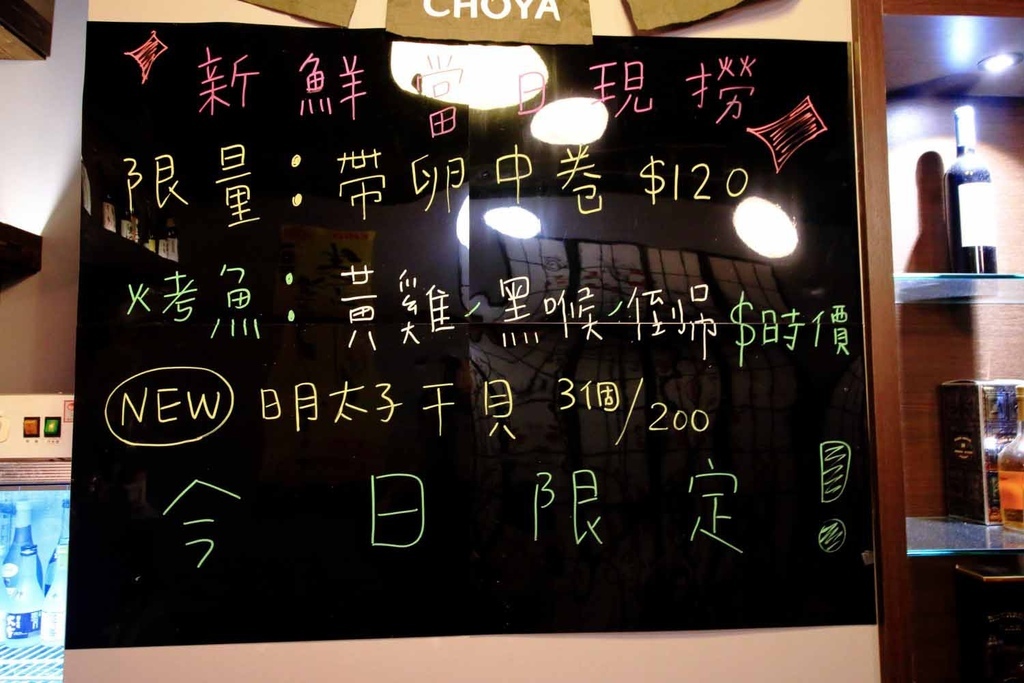 CHOYA
新鮮當日現撈
限量：帶卵中卷 $120
烤魚：黃雞、黑喉、
$時價
NEW 明太子干貝 3個/200
今日限定！